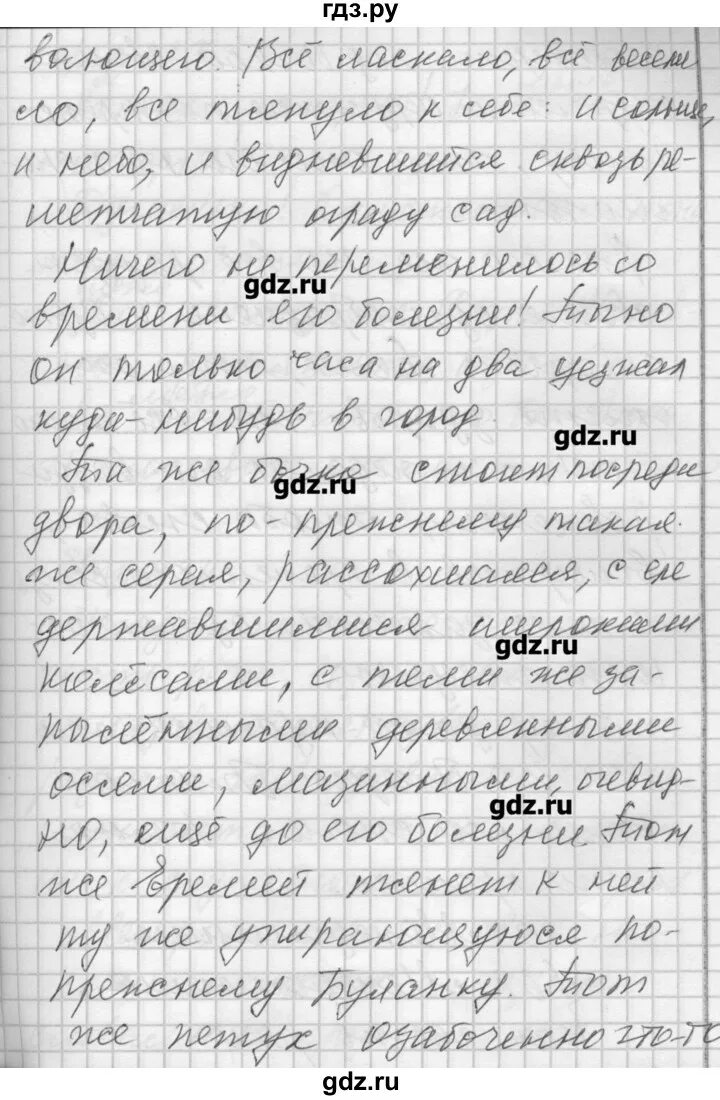 гдз.ру
вающего. Всё ласкало, всё весели
ло, все тянуло к себе: и солнце,
и небо, и видневшийся сквозь ре-
шетчатую ограду сад.
Ничего не переменилось со
gdz.ru
времени его болезни! Точно
он только часа на два уезжал
куда-нибудь в город.
gdz.ru
Та же бочка стоит посреди
gdz.ru
двора, по-прежнему такая
же серая, рассохшаяся, с еле
державшимися широкими
gdz.ru
колёсами, с теми же за-
пылёнными деревянными
осями, мазанными, очевид-
gdz.ru
но, ещё до его болезни. Тот
же Еремей тянет к ней
ту же упирающуюся по-
прежнему Буланку. Тот
же петух озабоченно что-то
gdz.ru